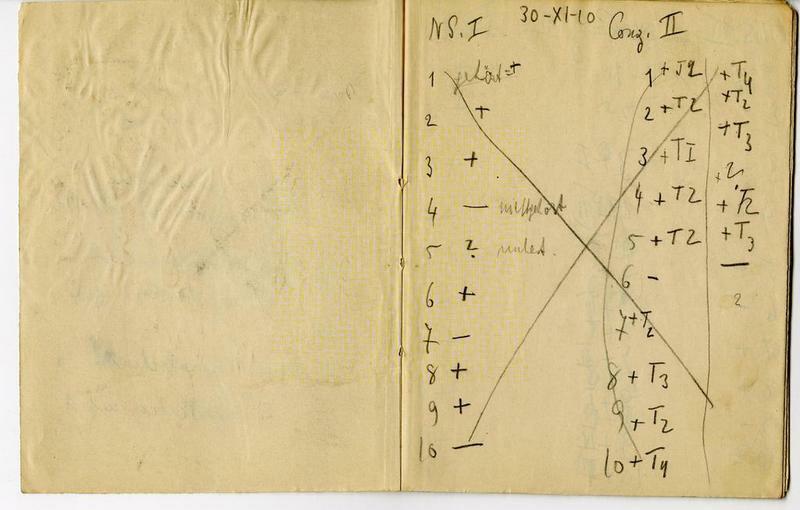 NS. I 30-XI-10 Conz. II
1 gelöst + 1 + T2 + T4
2 + 2 + T2 + T2
3 + 3 + TI + T3
4 — nicht gelöst 4 + T2 + T2
5 ? 5 + T2 + T3
6 + 6 - —
7 — 7 + T2 2
8 + 8 + T3
9 + 9 + T2
10 — 10 + T4